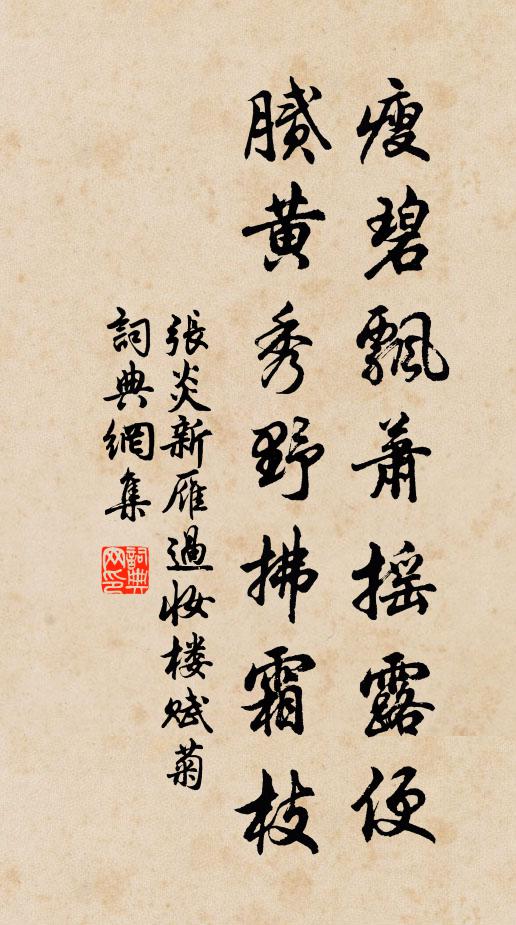 瘦碧飄蕭摇露便
膩黄秀野拂霜枝
張炎新雁過妆楼賦菊
詞典網集
詞典网印